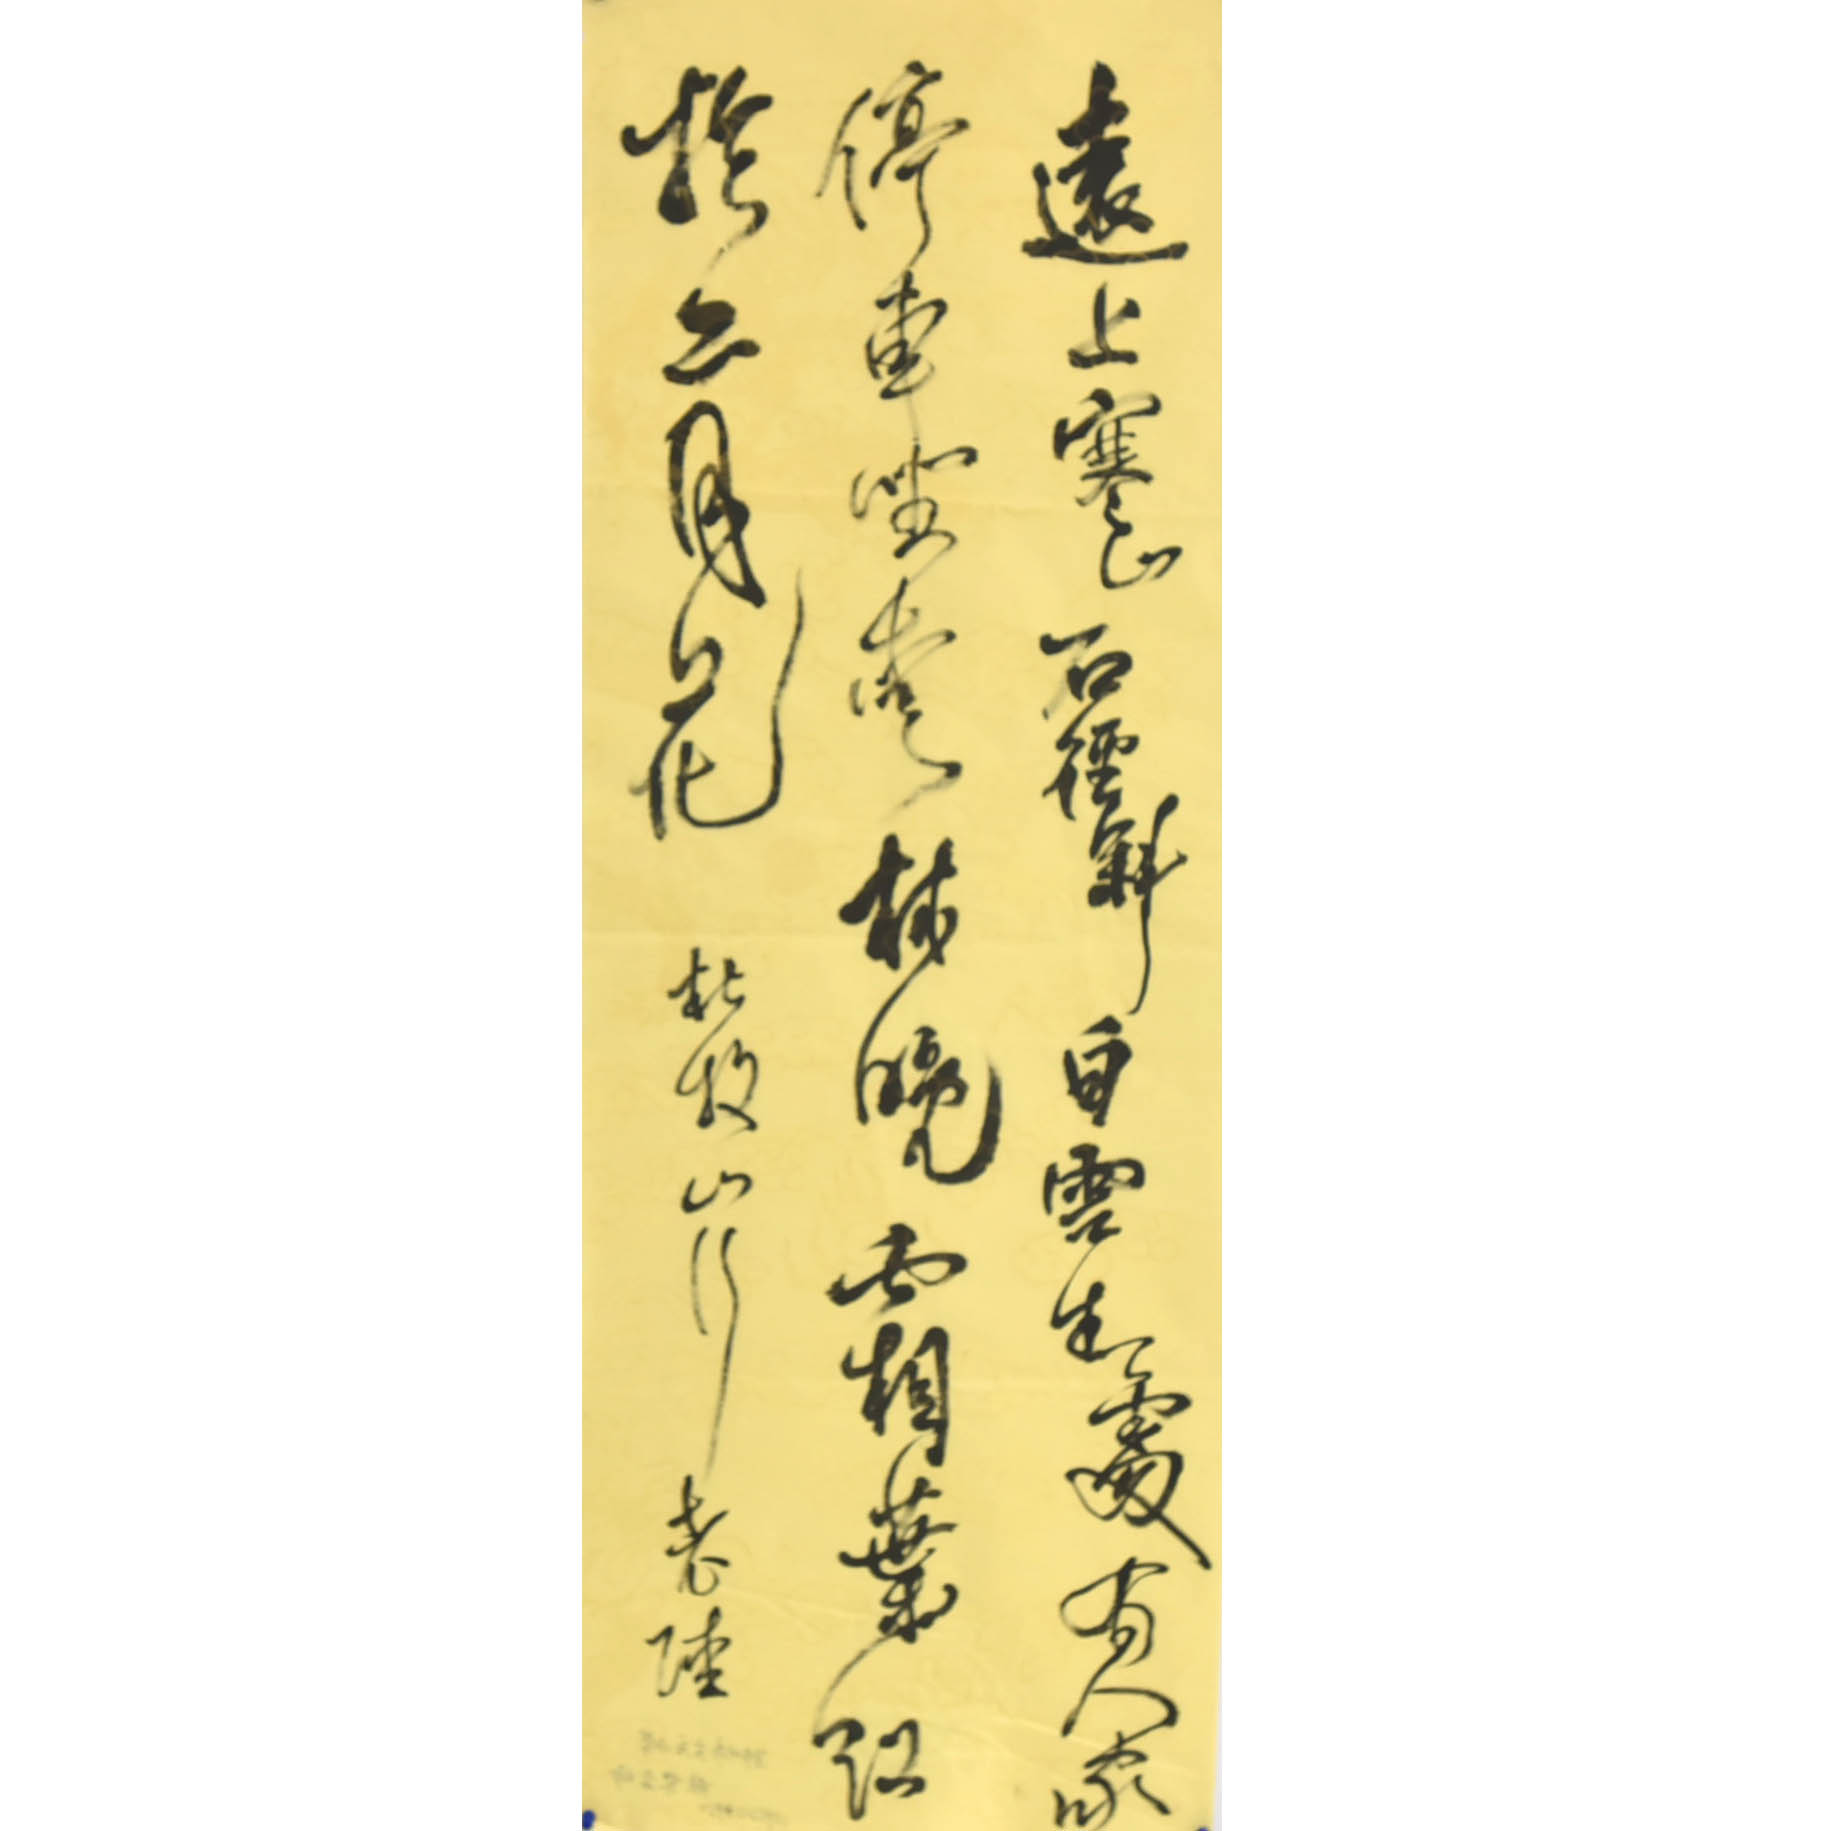 遠上寒山石徑斜白雲生處有人家
停車坐愛林晚霜葉紅
於二月花 杜牧山行 老陸